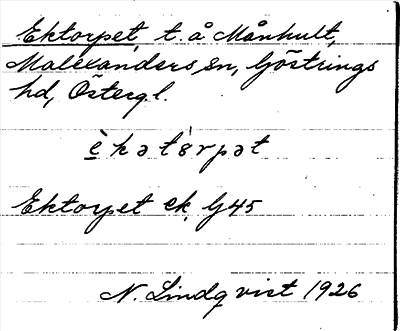 Ektorpet, t. å Månhult,
Malexanders sn, Göstrings
hd, Östergl.
Ektorpet ek. G45
N. Lindqvist 1926